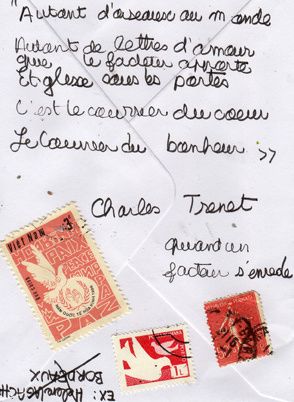 "Autant d'oiseaux au monde
Autant de lettres d'amour
que le facteur apporte
Et glisse sous les portes
C'est le courrier du coeur
Le Courrier du bonheur »
Charles Trenet
quand un
facteur s'envole
VIET NAM 3
PAIX
PAZ
EX:
BORDEAUX